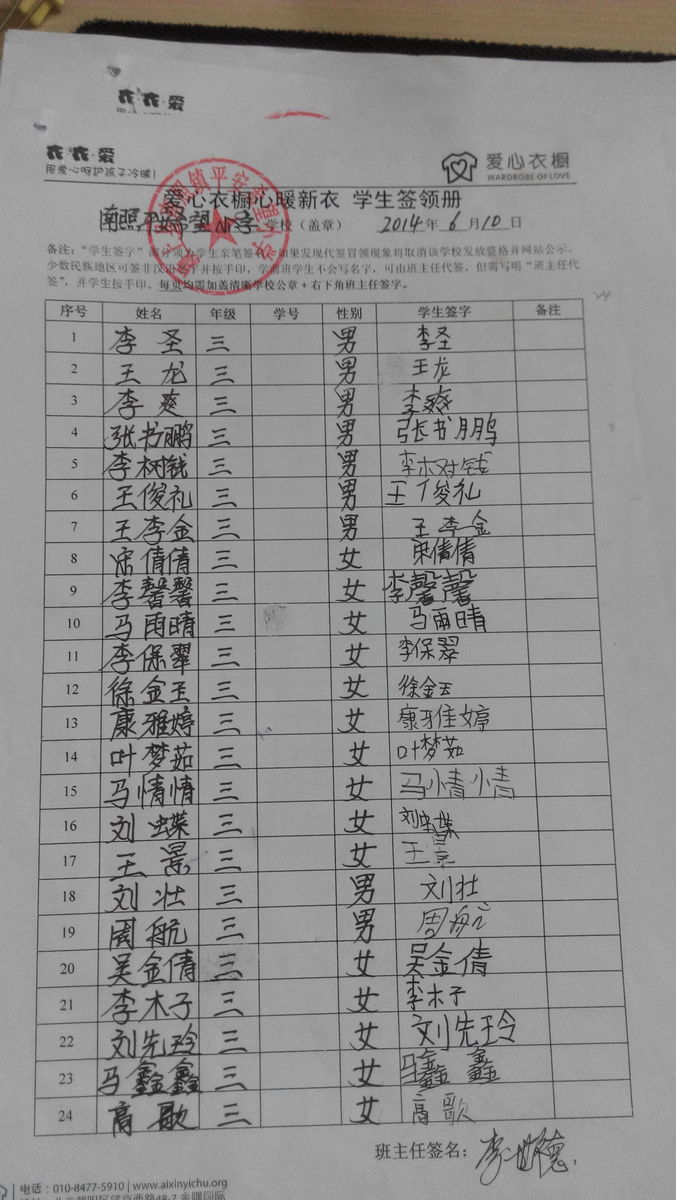 衣·衣·爱
衣·衣·爱
用爱心呵护孩子冷暖!
爱心衣橱
WARDROBE OF LOVE
爱心衣橱心暖新衣 学生签领册
南照平安希望小学学校（盖章） 2014年6月10日
备注：“学生签字”部分须为学生亲笔签，如果发现代签冒领现象将取消该学校发放资格并网站公示。
少数民族地区可签非汉语名字并按手印，学前班学生不会写名字，可由班主任代签，但需写明“班主任代
签”，并学生按手印。每页均需加盖清晰学校公章+右下角班主任签字。
序号 姓名 年级 学号 性别 学生签字 备注
1 李圣 三 男 李圣
2 王龙 三 男 王龙
3 李爽 三 男 李爽
4 张书鹏 三 男 张书鹏
5 李树钱 三 男 李树钱
6 王俊礼 三 男 王俊礼
7 王李金 三 男 王李金
8 宋倩倩 三 女 宋倩倩
9 李馨馨 三 女 李馨馨
10 马雨晴 三 女 马雨晴
11 李保翠 三 女 李保翠
12 徐金玉 三 女 徐金玉
13 康雅婷 三 女 康雅婷
14 叶梦茹 三 女 叶梦茹
15 马情情 三 女 马情情
16 刘蝶 三 女 刘蝶
17 王景 三 女 王景
18 刘壮 三 男 刘壮
19 周航 三 男 周航
20 吴金倩 三 女 吴金倩
21 李木子 三 女 李木子
22 刘先玲 三 女 刘先玲
23 马鑫鑫 三 女 马鑫鑫
24 高歌 三 女 高歌
班主任签名：李世德
电话：010-8477-5910 | www.aixinyichu.org